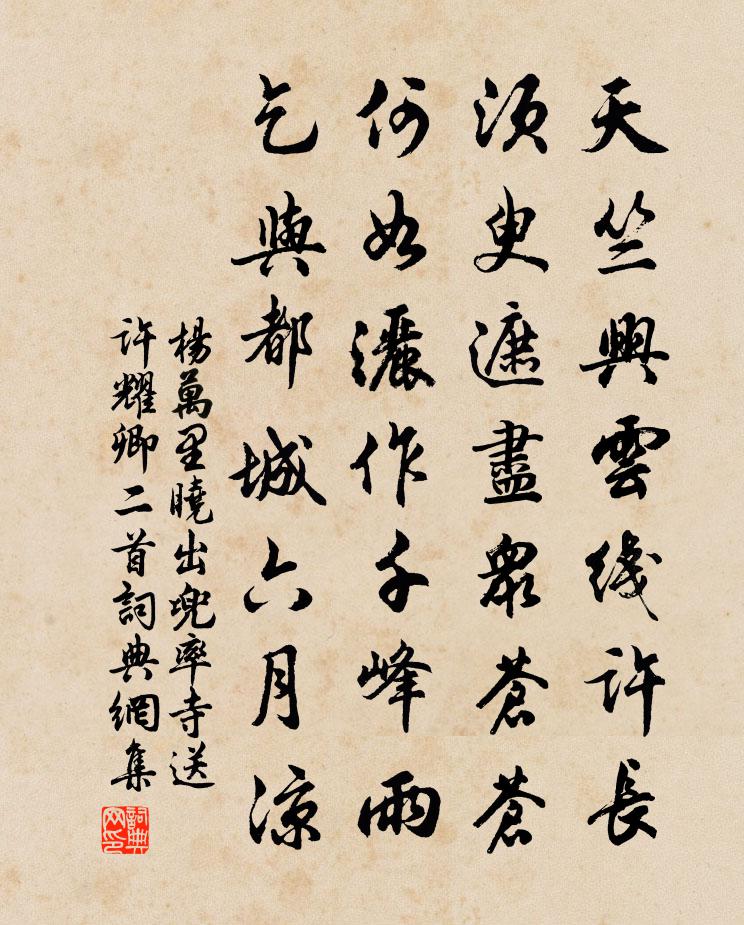 天竺興雲綫許長
須臾遮盡衆蒼蒼
何如灑作千峰雨
乞與都城六月涼
楊萬里曉出兜率寺送
許耀卿二首詞典網集
詞典网印